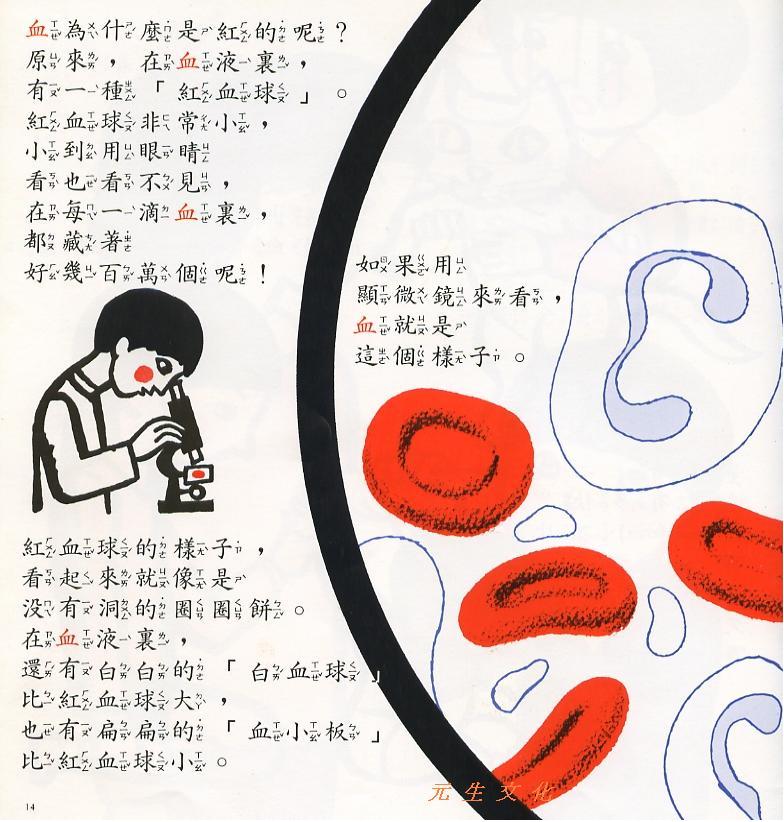 血為什麼是紅的呢？
原來，在血液裏，
有一種「紅血球」。
紅血球非常小，
小到用眼睛
看也看不見，
在每一滴血裏，
都藏著
好幾百萬個呢！
如果用
顯微鏡來看，
血就是
這個樣子。
紅血球的樣子，
看起來就像是
沒有洞的圈圈餅。
在血液裏，
還有白白的「白血球」
比紅血球大，
也有扁扁的「血小板」
比紅血球小。
14
元生文化